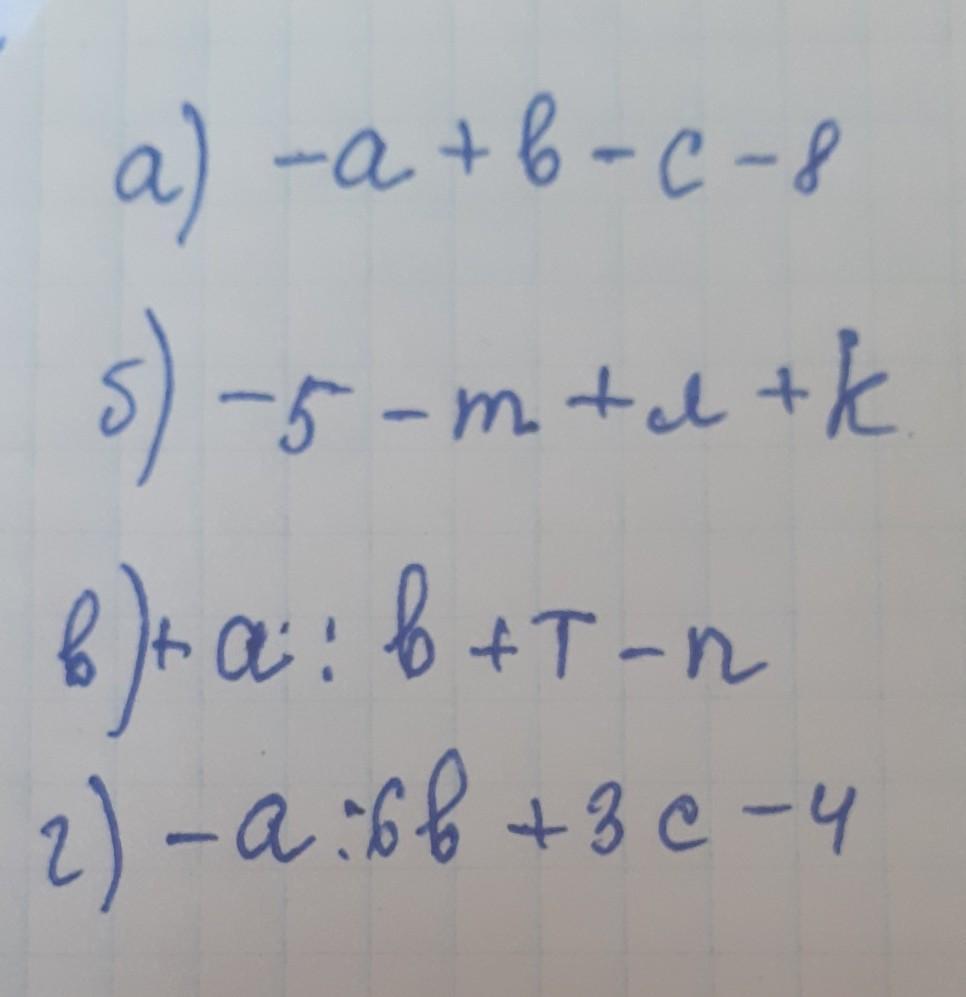 а) -a + b - c - 8
б) -5 - m + d + k
в) + a : b + T - n
г) -a : 6b + 3c - 4